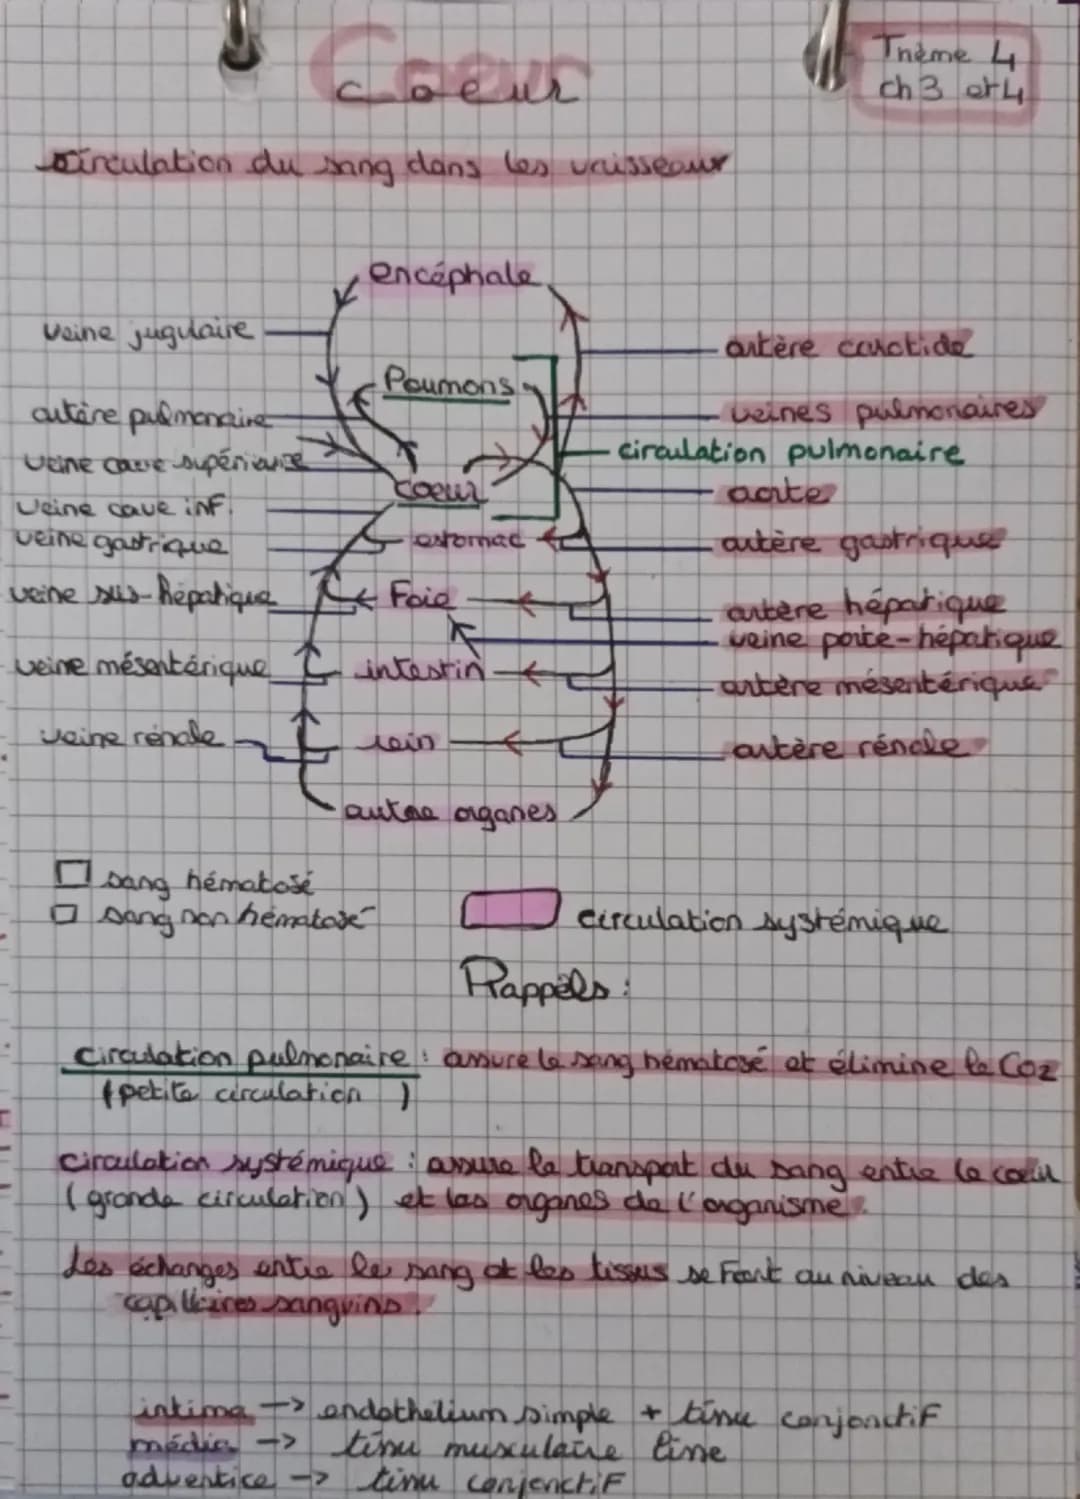 Coeur
Thème 4
ch 3 et 4
Circulation du sang dans les vaisseaux
encéphale
veine jugulaire
artère carotide
Poumons
artère pulmonaire
veines pulmonaires
circulation pulmonaire
veine cave supérieure
coeur
aorte
veine cave inf.
veine gastrique
estomac
artère gastrique
veine sus-hépatique
Foie
artère hépatique
veine porte-hépatique
veine mésentérique
intestin
artère mésentérique
veine rénale
rein
artère rénale
autre organes
sang hématosé
sang non hématosé
circulation systémique
Rappels :
circulation pulmonaire : assure le sang hématosé et élimine le CO2
(petite circulation )
circulation systémique : assure le transport du sang entre le coeur
(grande circulation) et les organes de l'organisme.
Les échanges entre le sang et les tissus se font au niveau des
capillaires sanguins.
intima -> endothelium simple + tissu conjonctif
média -> tissu musculaire lisse
adventice -> tissu conjonctif